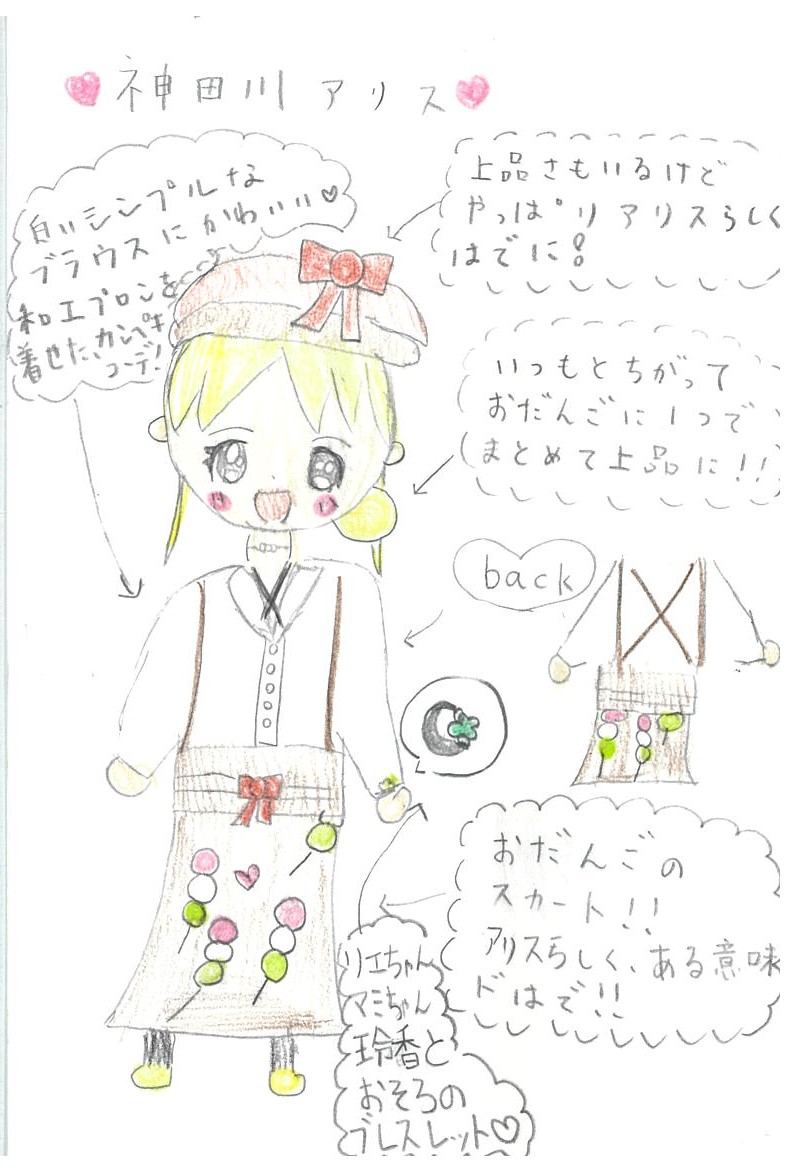 神田川 アリス
白いシンプルな
ブラウスにかわいい♡
和エプロンを
着せた、カンペキ
コーデ!
上品さもいるけど
やっぱりアリスらしく
はでに!
いつもとちがって
おだんごに1つで
まとめて上品に!!
back
おだんごの
スカート!!
アリスらしく、ある意味
ドはで!!
リエちゃん
マミちゃん
玲香と
おそろの
ブレスレット♡